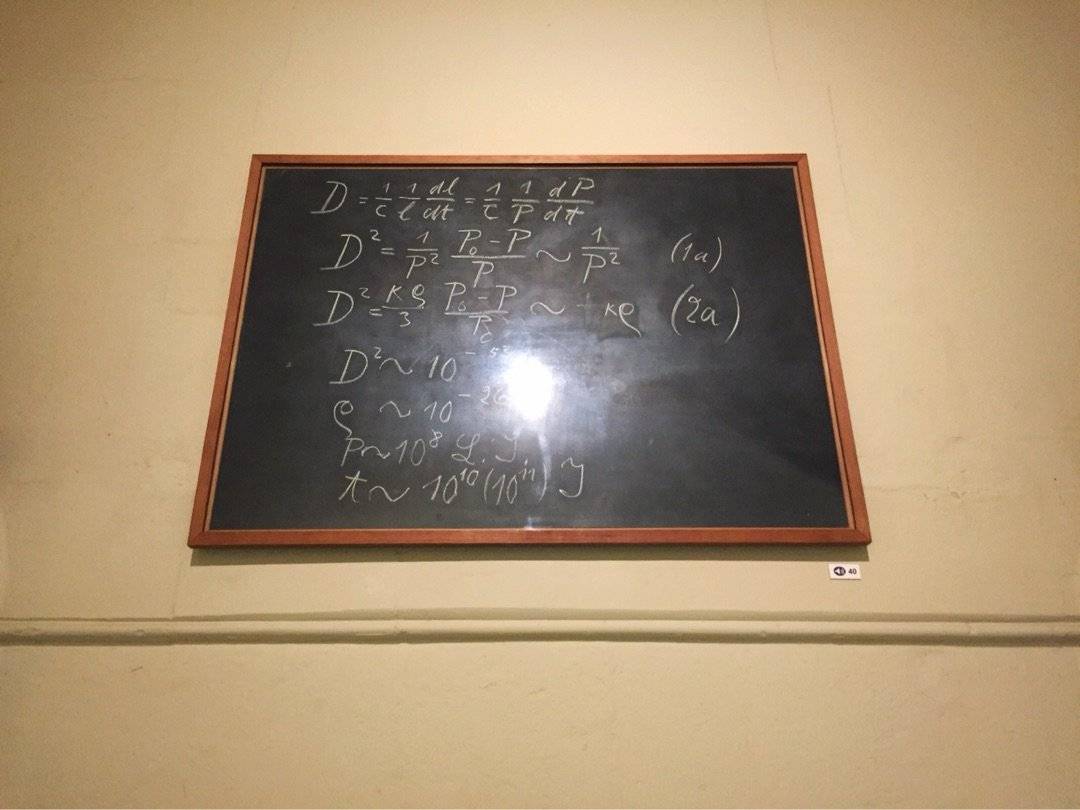 D = 1/c 1/l dl/dt = 1/c 1/P dP/dt
D² = 1/P² (P₀-P)/P ~ 1/P² (1a)
D² = κρ/3 (P₀-P)/P₀ ~ κρ (2a)
D² ~ 10⁻⁵³
ρ ~ 10⁻²⁶
P ~ 10⁸ L.J
t ~ 10¹⁰(10¹¹) J
40